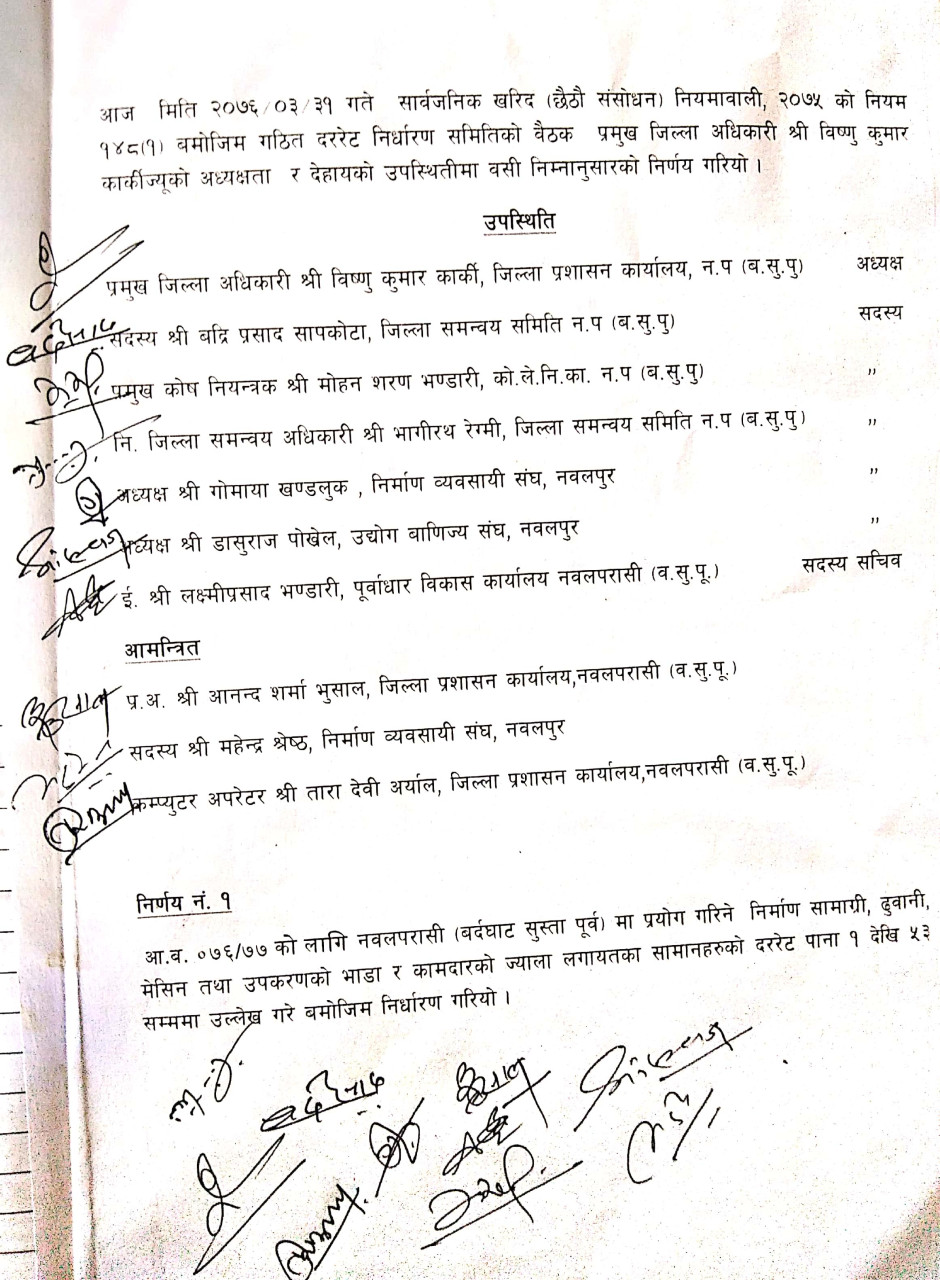 आज मिति २०७६/०३/३१ गते सार्वजनिक खरिद (छैठौ संसोधन) नियमावाली, २०७५ को नियम
१४८(१) बमोजिम गठित दररेट निर्धारण समितिको बैठक प्रमुख जिल्ला अधिकारी श्री विष्णु कुमार
कार्कीज्यूको अध्यक्षता र देहायको उपस्थितीमा वसी निम्नानुसारको निर्णय गरियो ।
उपस्थिति
प्रमुख जिल्ला अधिकारी श्री विष्णु कुमार कार्की, जिल्ला प्रशासन कार्यालय, न.प (ब.सु.पु) अध्यक्ष
सदस्य श्री बद्रि प्रसाद सापकोटा, जिल्ला समन्वय समिति न.प (ब.सु.पु) सदस्य
प्रमुख कोष नियन्त्रक श्री मोहन शरण भण्डारी, को.ले.नि.का. न.प (ब.सु.पु) ,,
नि. जिल्ला समन्वय अधिकारी श्री भागीरथ रेग्मी, जिल्ला समन्वय समिति न.प (ब.सु.पु) ,,
अध्यक्ष श्री गोमाया खण्डलुक , निर्माण व्यवसायी संघ, नवलपुर ,,
अध्यक्ष श्री डासुराज पोखेल, उद्योग बाणिज्य संघ, नवलपुर ,,
ई. श्री लक्ष्मीप्रसाद भण्डारी, पूर्वाधार विकास कार्यालय नवलपरासी (व.सु.पू.) सदस्य सचिव
आमन्त्रित
प्र.अ. श्री आनन्द शर्मा भुसाल, जिल्ला प्रशासन कार्यालय,नवलपरासी (व.सु.पू.)
सदस्य श्री महेन्द्र श्रेष्ठ, निर्माण व्यवसायी संघ, नवलपुर
कम्प्युटर अपरेटर श्री तारा देवी अर्याल, जिल्ला प्रशासन कार्यालय,नवलपरासी (व.सु.पू.)
निर्णय नं. १
आ.व. ०७६/७७ को लागि नवलपरासी (बर्दघाट सुस्ता पूर्व) मा प्रयोग गरिने निर्माण सामाग्री, ढुवानी,
मेसिन तथा उपकरणको भाडा र कामदारको ज्याला लगायतका सामानहरुको दररेट पाना १ देखि ५३
सम्ममा उल्लेख गरे बमोजिम निर्धारण गरियो ।